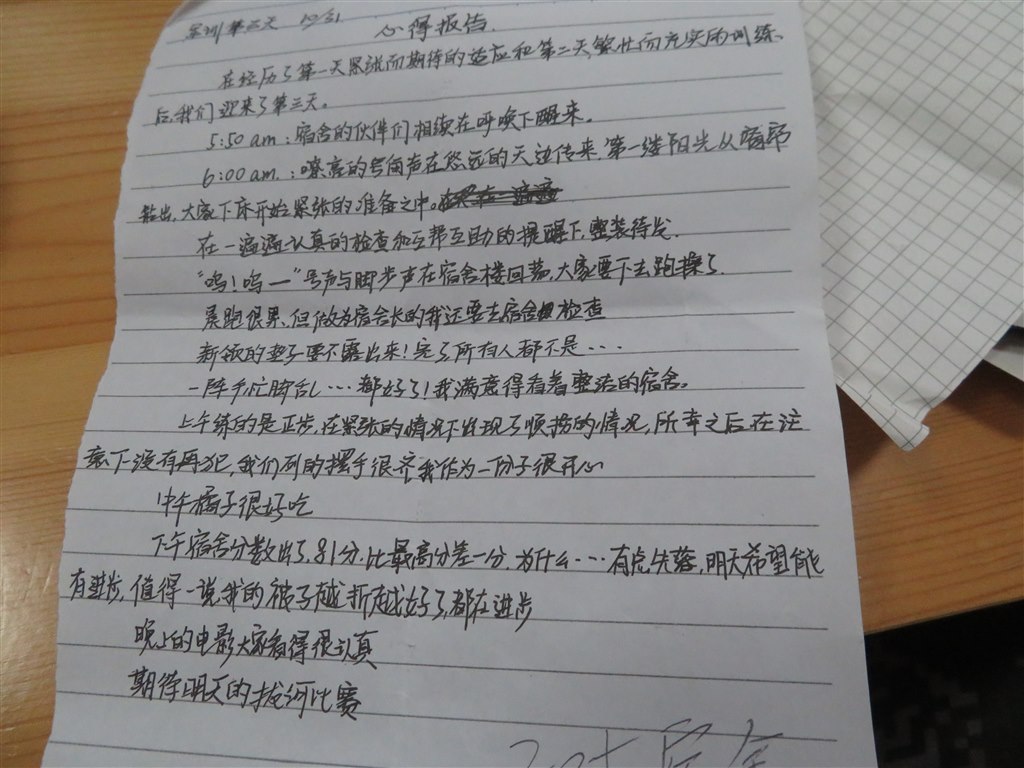 军训第三天 10/31
心得报告
在经历了第一天紧张而期待的适应和第二天繁忙而充实的训练
后,我们迎来了第三天。
5:50 am:宿舍的伙伴们相续在呼唤下醒来。
6:00 am:嘹亮的号角声在悠远的天边传来,第一缕阳光从
钻出,大家下床开始紧张的准备之中。
在一遍遍认真的检查和互帮互助的提醒下,整装待发.
“呜!呜—”号声与脚步声在宿舍楼回荡,大家要下去跑操了.
晨跑很累,但做为宿舍长的我还要去宿舍检查
新领的垫子要不露出来!完了所有人都不是···
一阵手忙脚乱···都好了!我满意得看着整洁的宿舍。
上午练的是正步,在紧张的情况下出现了顺拐的情况,所幸之后在注
意下没有再犯,我们列的摆手很齐我作为一份子很开心
中午橘子很好吃
下午宿舍分数出了,81分.比最高分差一分.为什么···有点失落,明天希望能
有进步,值得一说我的被子越折越好了,都在进步
晚上的电影大家看得很认真
期待明天的拔河比赛